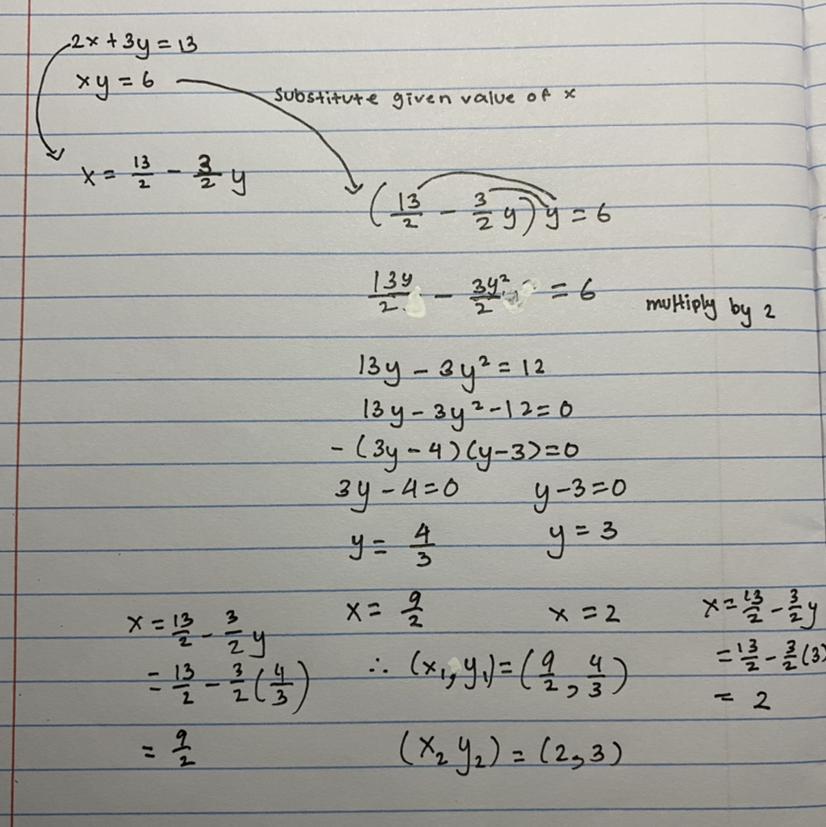 2x + 3y = 13
xy = 6
substitute given value of x
x = 13/2 - 3/2 y
(13/2 - 3/2 y) y = 6
13y/2 - 3y²/2 = 6
multiply by 2
13y - 3y² = 12
13y - 3y² - 12 = 0
-(3y - 4)(y - 3) = 0
3y - 4 = 0    y - 3 = 0
y = 4/3    y = 3
x = 9/2    x = 2
x = 13/2 - 3/2 y
= 13/2 - 3/2 (4/3)
= 9/2
∴ (x₁, y₁) = (9/2, 4/3)
(x₂ y₂) = (2, 3)
x = 13/2 - 3/2 y
= 13/2 - 3/2 (3)
= 2